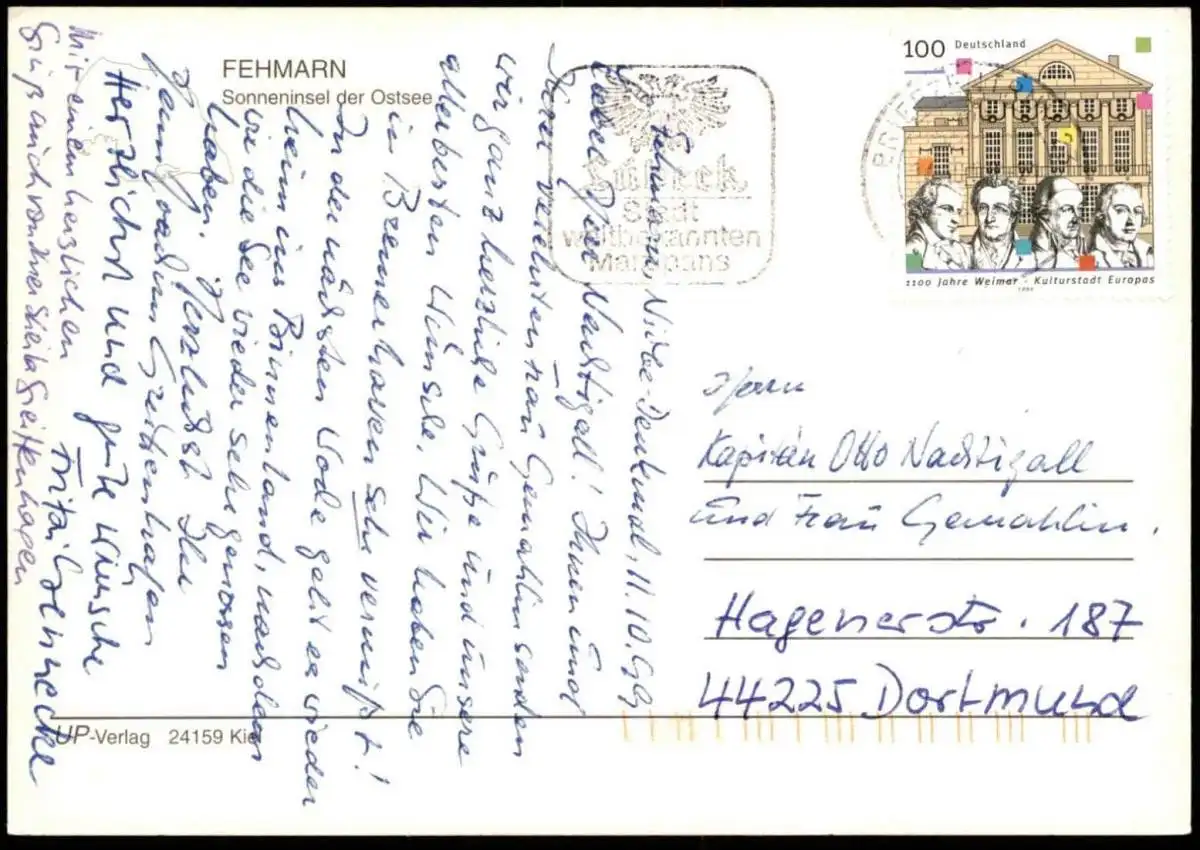 FEHMARN
Sonneninsel der Ostsee
100 Deutschland
1100 Jahre Weimar - Kulturstadt Europas
1999
BRIEFZ
Lübeck
Stadt
weltbekannten
Marzipans
Fehmarn Niobe-Denkmal, 11.10.99
Lieber Herr Nachtigall! Ihnen und
Ihrer verehrten Frau Gemahlin senden
wir ganz herzliche Grüße und unsere
allerbesten Wünsche. Wir haben Sie
in Bremerhaven sehr vermißt!
In der nächsten Woche geht es wieder
heim ins Binnenland, nachdem
wir die See wieder sehr genossen
haben. Herzlichst Ihr
Hans Joachim
Herzlichst und gute Wünsche
Frita
Mit einem herzlichen
Gruß auch von Ihrer
Herrn
Kapitän Otto Nachtigall
und Frau Gemahlin.
Hagenerstr. 187
44225 Dortmund
UP-Verlag 24159 Kiel